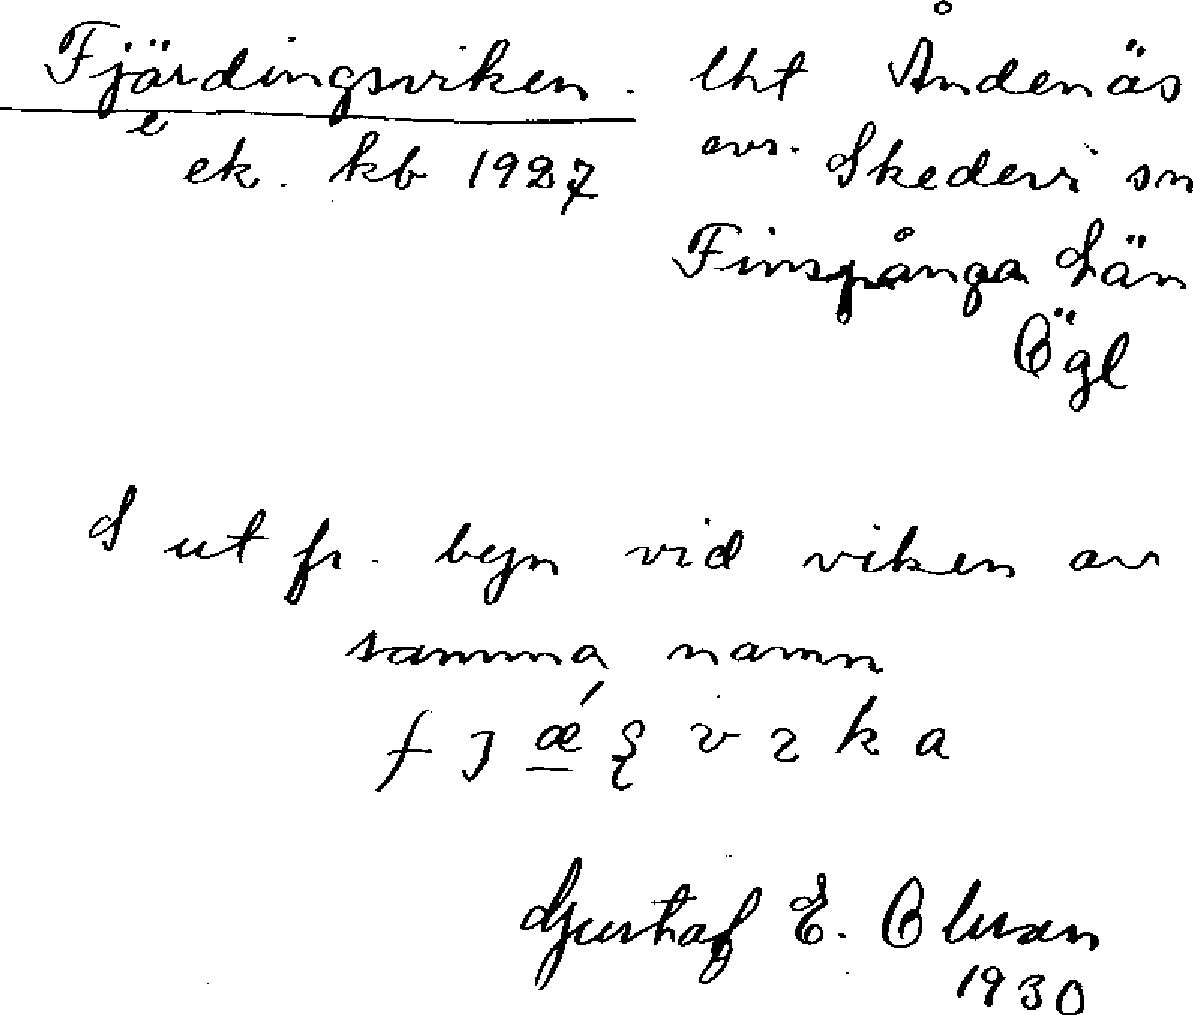 Fjärdingsviken. lht Åndenäs
e
ek. kb 1927 avs. Skedevi sn
Finspånga Län
Ögl
S ut fr. byn vid viken av
samma namn
k a
Gustaf E. Olsson
1930